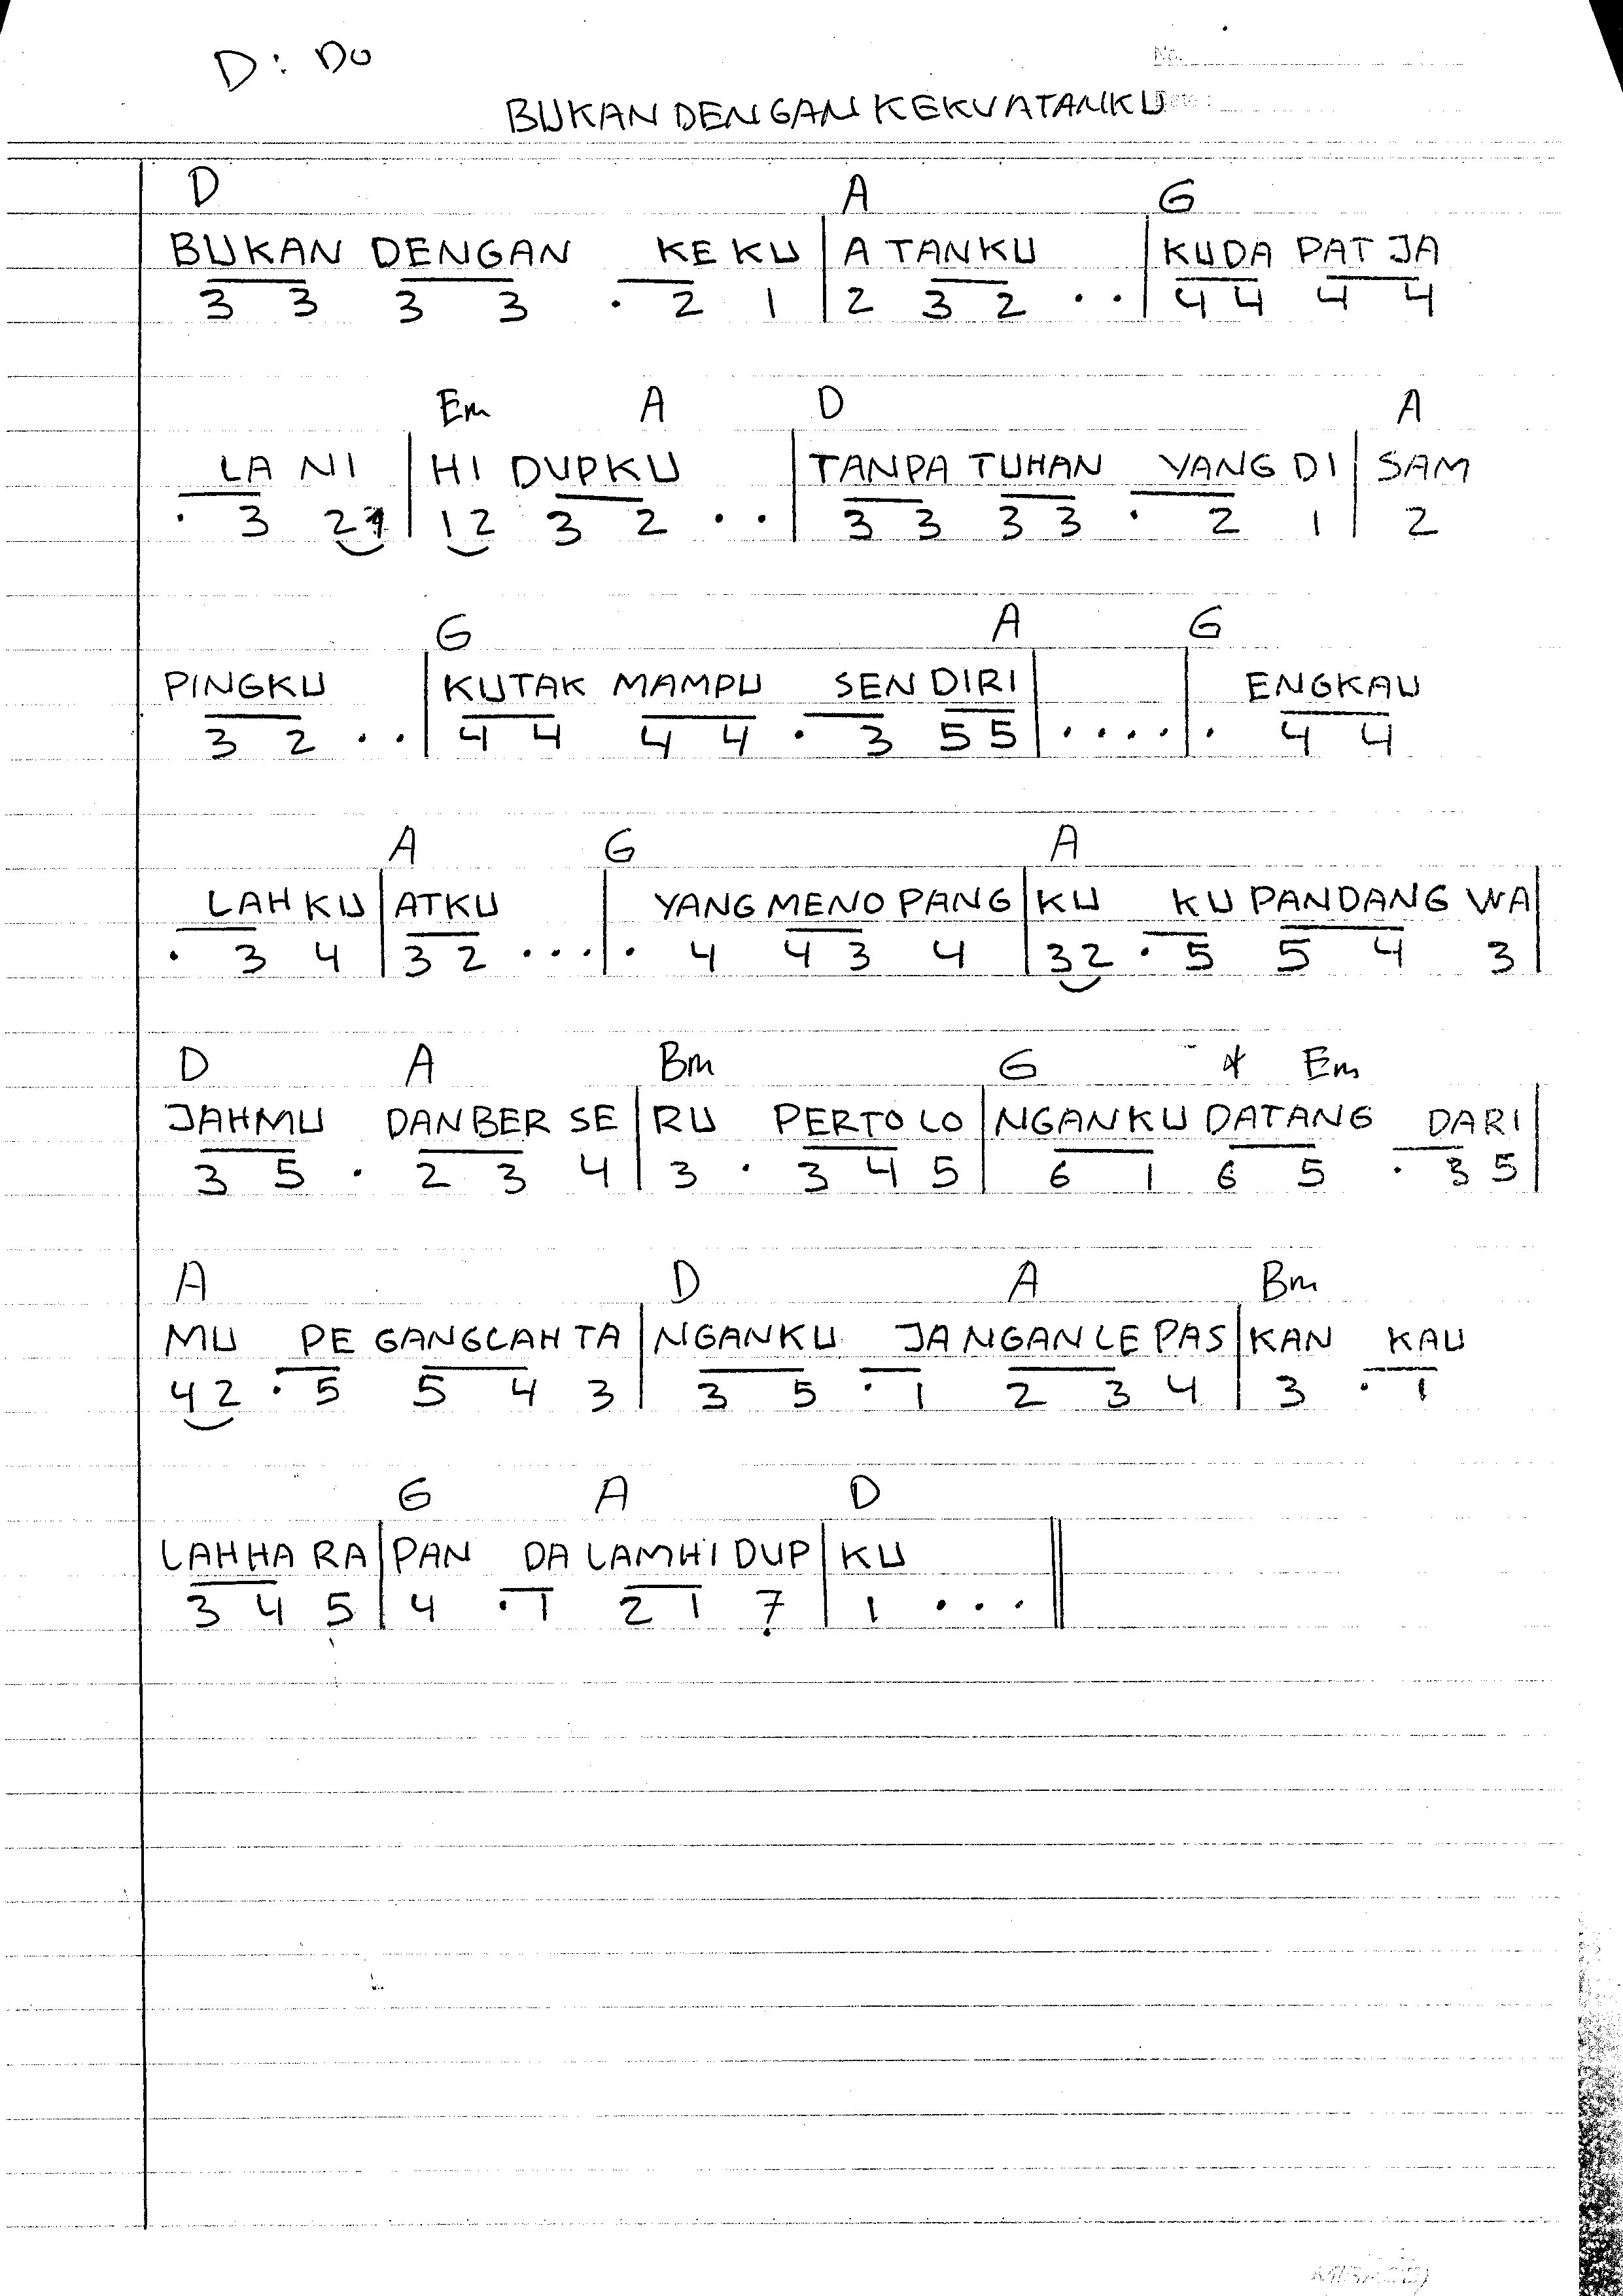 D : Do
No.
BUKAN DENGAN KEKUATANKU
D A G
BUKAN DENGAN KE KU | A TANKU | KUDA PAT JA
3 3 3 3 . 2 1 | 2 3 2 . . | 4 4 4 4
Em A D A
LA NI | HI DUPKU | TANPA TUHAN YANG DI | SAM
. 3 21 | 12 3 2 . . | 3 3 3 3 . 2 1 | 2
G A G
PINGKU | KUTAK MAMPU SENDIRI | | ENGKAU
3 2 . . | 4 4 4 4 . 3 5 5 | . . . . | . 4 4
A G A
LAH KU | ATKU | YANG MENO PANG | KU KU PANDANG WA |
. 3 4 | 3 2 . . . | . 4 4 3 4 | 32 . 5 5 4 3 |
D A Bm G * Em
JAHMU DANBER SE | RU PERTO LO | NGANKU DATANG DARI |
3 5 . 2 3 4 | 3 . 3 4 5 | 6 1 6 5 . 3 5 |
A D A Bm
MU PE GANGLAH TA | NGANKU JANGAN LE PAS | KAN KAU
42 . 5 5 4 3 | 3 5 . 1 2 3 4 | 3 . 1
G A D
LAHHA RA | PAN DA LAMHI DUP | KU ||
3 4 5 | 4 . 1 2 1 7̣ | 1 . . . ||